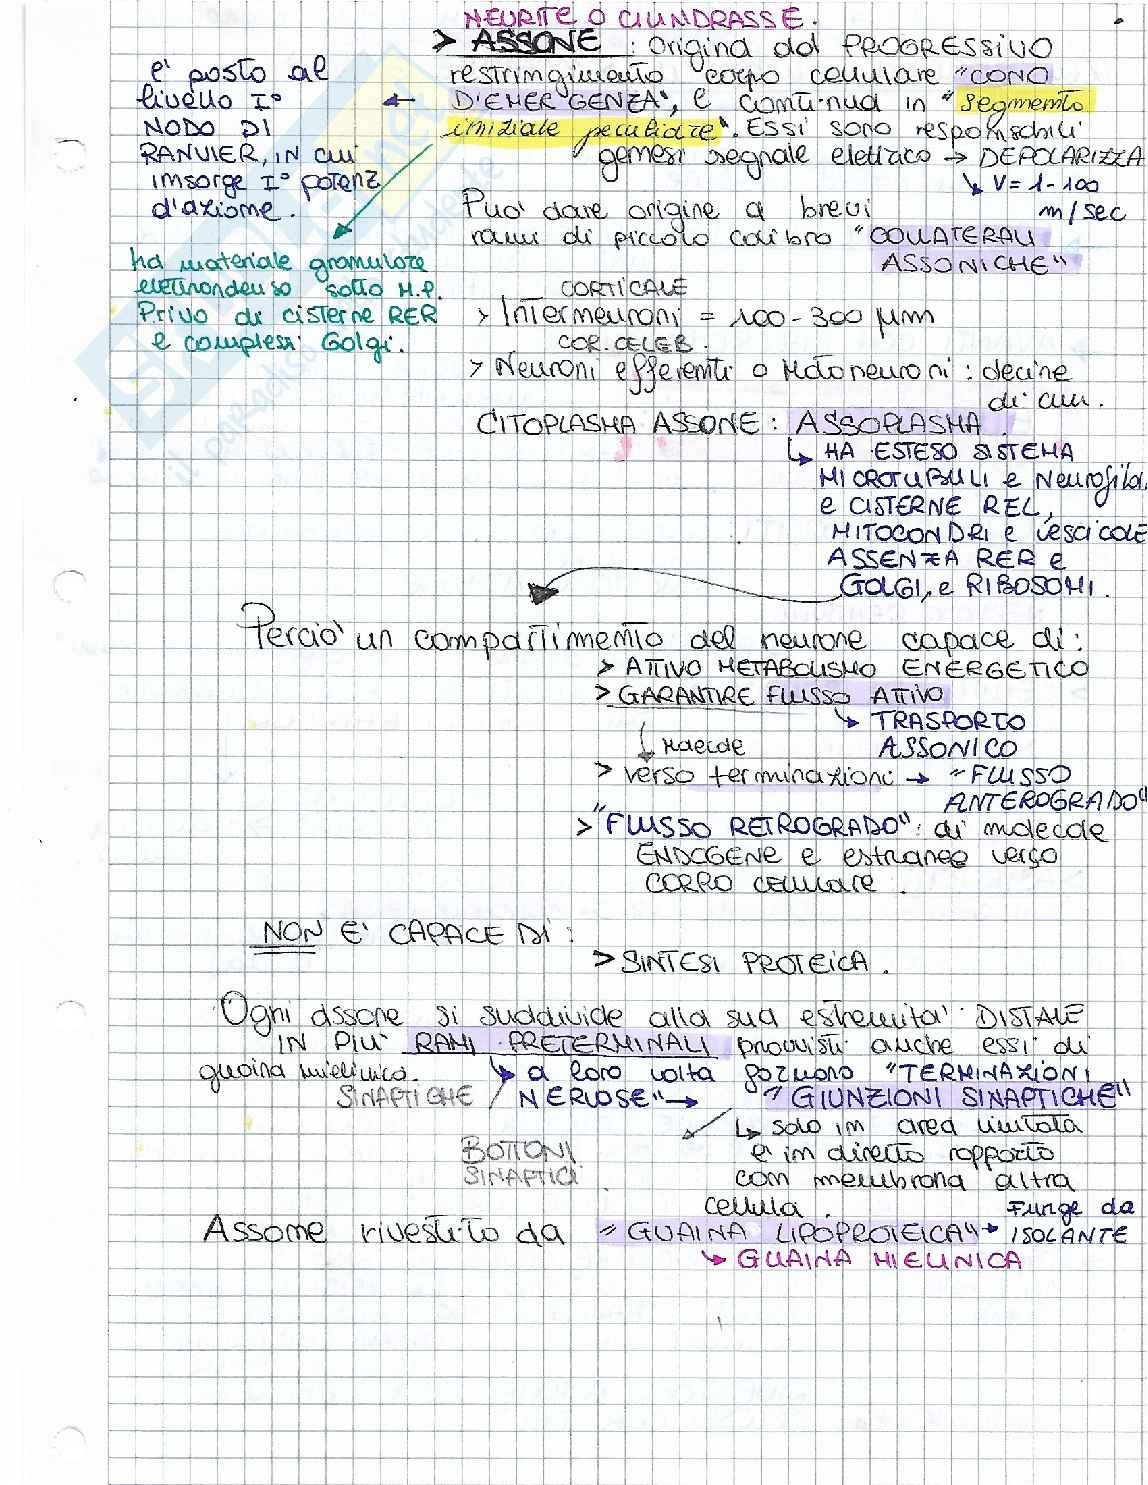 NEURITE O CILINDRASSE.
> ASSONE : origina dal PROGRESSIVO
restringimento corpo cellulare "CONO
D'EMERGENZA", e continua in "segmento
iniziale peculiare". Essi sono responsabili
genesi segnale elettrico → DEPOLARIZZA
↳ V = 1-100
m/sec
è posto al
livello I°
NODO DI
RANVIER, IN cui
insorge I° potenz
d'azione.
Può dare origine a brevi
rami di piccolo calibro "COLLATERALI
ASSONICHE"
ha materiale granulare
elettrondenso sotto M.P.
Privo di cisterne RER
e complessi Golgi.
CORTICALE
> Interneuroni = 100-300 µm
COR. CELEB.
> Neuroni efferenti o Motoneuroni : decine
di cm.
CITOPLASMA ASSONE : ASSOPLASMA
↳ HA ESTESO SISTEMA
MICROTUBULI e Neurofila.
e CISTERNE REL,
MITOCONDRI e vescicole
ASSENZA RER e
GOLGI, e RIBOSOMI.
Perciò un compartimento del neurone capace di :
> ATTIVO METABOLISMO ENERGETICO
> GARANTIRE FLUSSO ATTIVO
↳ TRASPORTO
ASSONICO
↓ Maecde
> verso terminazioni → "FLUSSO
ANTEROGRADO"
> "FLUSSO RETROGRADO" : di molecole
ENDOGENE e estranee verso
CORPO cellulare.
NON E' CAPACE DI :
> SINTESI PROTEICA.
Ogni assone si suddivide alla sua estremità DISTALE
IN PIÙ RAMI PRETERMINALI provvisti anche essi di
guaina mielinica. ↳ a loro volta formano "TERMINAZIONI
SINAPTICHE / NERVOSE" → "GIUNZIONI SINAPTICHE"
↳ solo in area limitata
BOTTONI
SINAPTICI
e in diretto rapporto
con membrana altra
cellula.
Assone rivestito da "GUAINA LIPOPROTEICA" → Funge da
ISOLANTE
↳ GUAINA MIELINICA